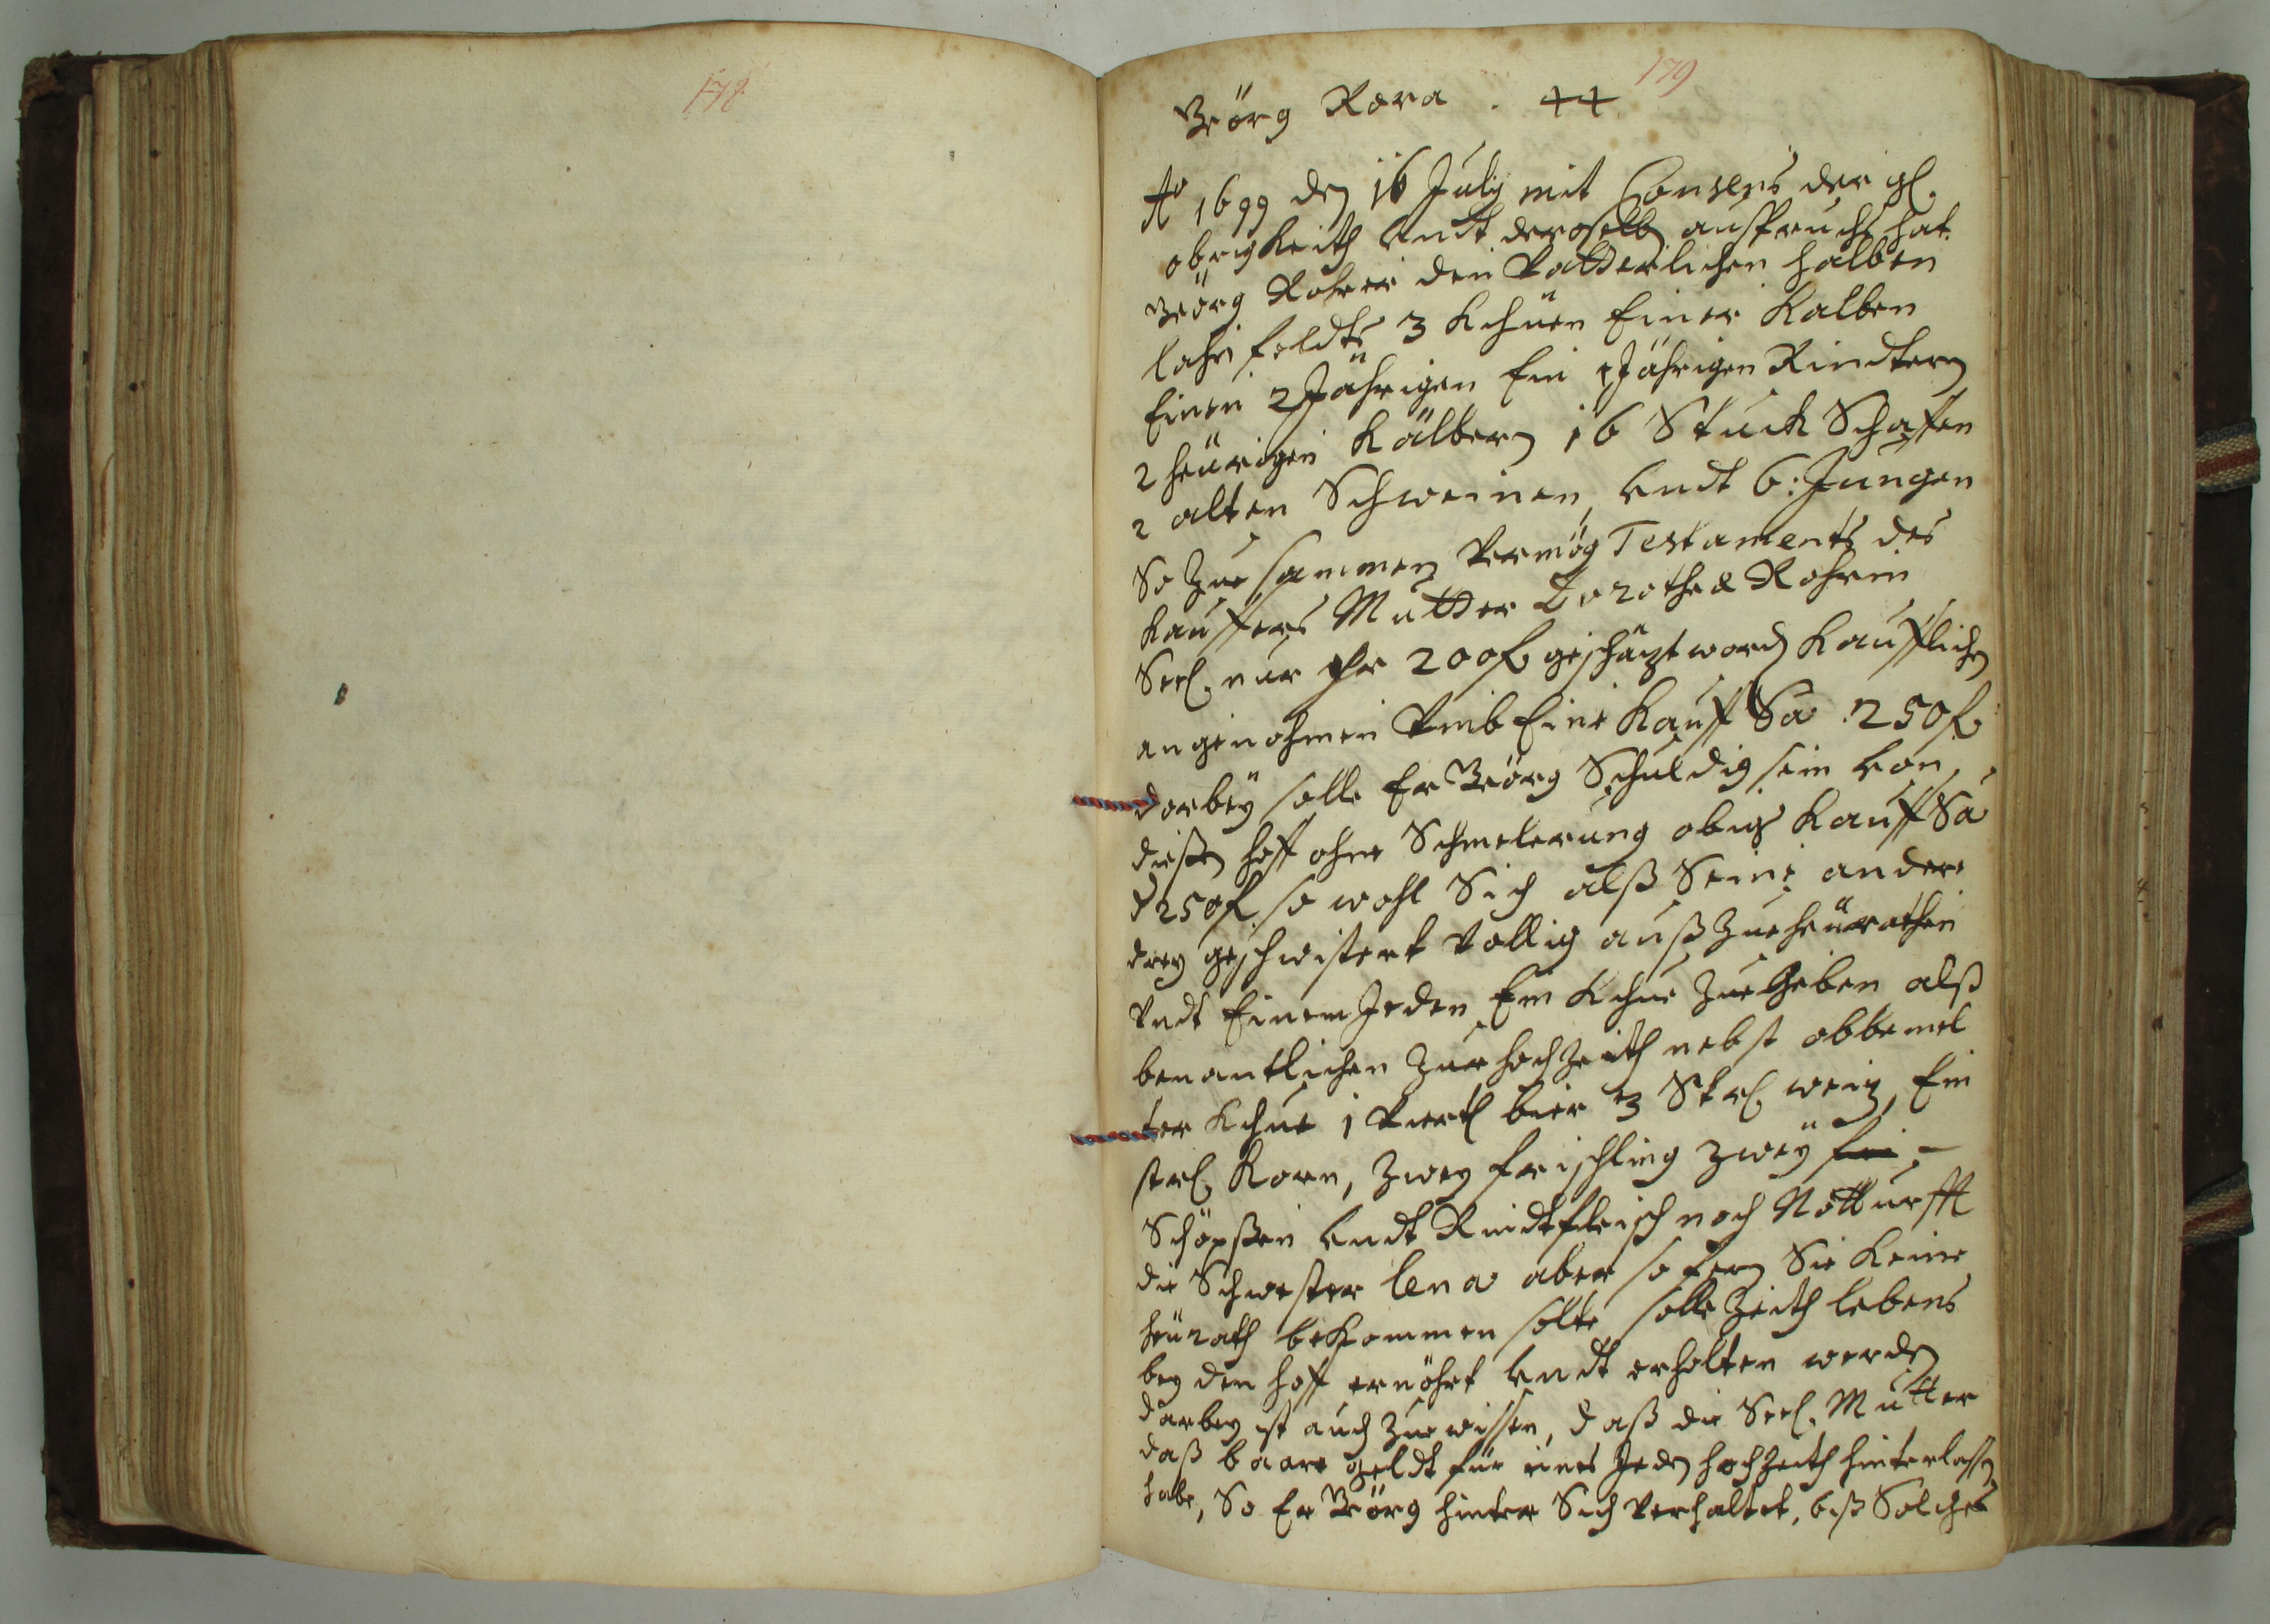 178
179
Görg Rora . ++
Aō 1699 den 16 July mit Consens der gl.
obrigkeith undt deroselb. ausspruchs hat
Görg Rohrer den Vatterlichen halben
lahn feldt 3 Khüen Einer Kalben
Einen 2 Jährigen Ein 1 Jährigen Rindtern
2 heürigen Kälbern 16 Stuck Schaffen
2 alten Schweinen, undt 6: Jungen
So Zue sammen Vermög Testaments des
Kauffers Mutter Dorothea Rohrin
Seel. nur per 200 f geschäzt word. Kaufflichen
angenohmen Vmb Eine Kauff Sa 250 f
darbey solle Er Görg Schuldig sein von
dießen hoff ohne Schmelerung obig. Kauff Sa
d 250 f so wohl Sich alß Seine andere
drey geschwistert Vollig auß Zue heürathen
Vndt Einem Jeden Ein Khue Zue Geben alß
benantlichen Zur hochzeith nebst obbemel
ter Khue 1 Viertl bier 3 Strl. weiz, Ein
strl. Korn, Zwey frischling Zwey
Schöpßen undt Rindtfleisch noch Notturfft
die Schwester lena aber so fern Sie Keine
heürath beKommen solte solle Zeith lebens
bey den hoff ernöhrt undt erholten werden
darbey ist auch Zue wissen, daß die Seel. Mutter
daß baare geldt für eines Jeden hochzeith hinterlassen
habe, So Er Görg hinter Sich Verhaltet, biß Solches